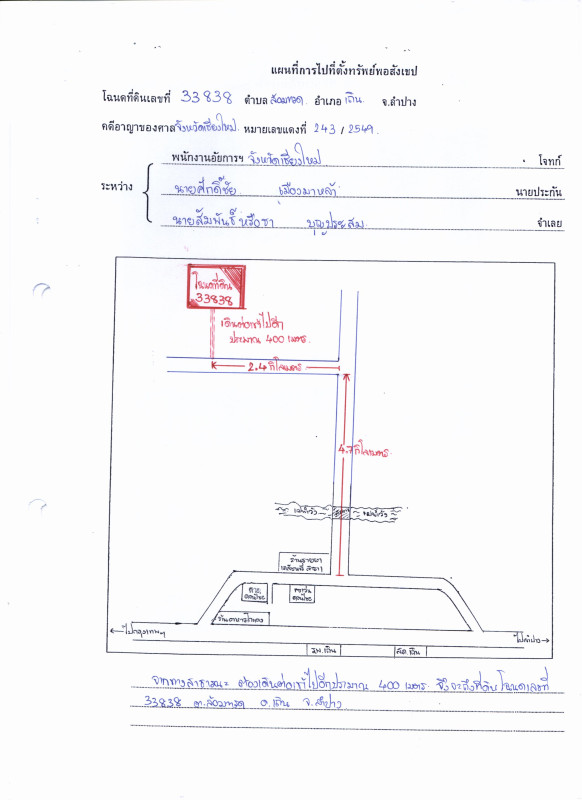 แผนที่การไปที่ตั้งทรัพย์พอสังเขป
โฉนดที่ดินเลขที่ 33838 ตำบล ล้อมแรด อำเภอ เถิน จ.ลำปาง
คดีอาญาของศาลจังหวัดเชียงใหม่ หมายเลขแดงที่ 243 / 2549
พนักงานอัยการฯ จังหวัดเชียงใหม่ โจทก์
ระหว่าง นายศักดิ์ชัย เมืองมาหล้า นายประกัน
นายสัมพันธ์ หรือชา บุญประสม จำเลย
โฉนดที่ดิน
33838
เดินต่อเข้าไปอีก
ประมาณ 400 เมตร
2.4 กิโลเมตร
4.7 กิโลเมตร
แม่น้ำวัง แม่น้ำวัง
ร้านขายยา
ร้านอาหาร
←ไปกรุงเทพฯ ไปลำปาง→
รพ.เถิน สภ.เถิน
จากทางสาธารณะ ต้องเดินต่อเข้าไปอีกประมาณ 400 เมตร จึงจะถึงที่ดินโฉนดเลขที่
33838 ต.ล้อมแรด อ.เถิน จ.ลำปาง